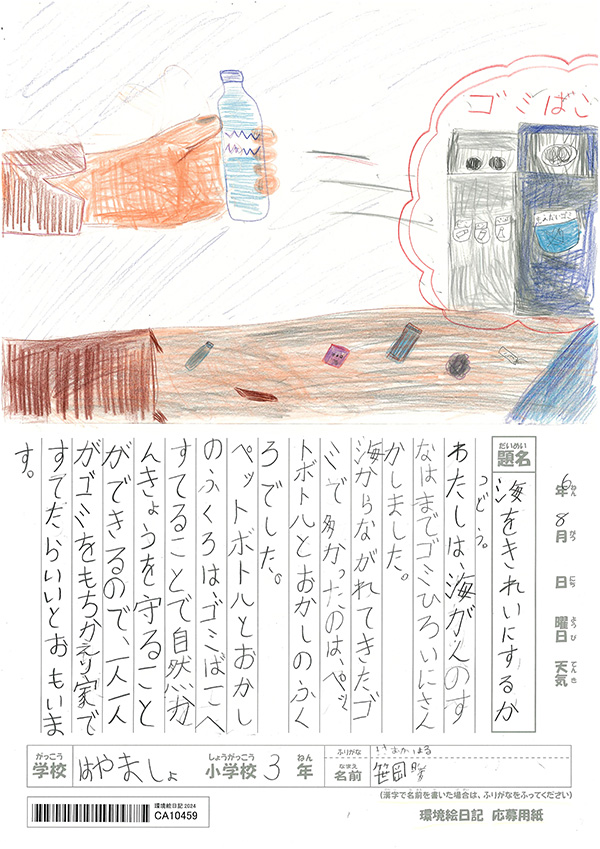 ゴミばこ
6年 8月 日 曜日 天気
ねん がつ にち ようび てんき
だいめい
題名
海をきれいにするか
つどう。
わたしは、海がんのす
なはまでゴミひろいにさん
かしました。
海からながれてきたゴ
ミで多かったのは、ペッ
トボトルとおかしのふく
ろでした。
ペットボトルとおかし
のふくろは、ゴミばこへ
すてることで自然か
んきょうを守ること
ができるので、一人一人
がゴミをもちかえり家で
すてたらいいとおもいま
す。
がっこう しょうがっこう ねん
学校 はやましょ 小学校 3 年
ふりがな
なまえ
名前 笹岡
(漢字で名前を書いた場合は、ふりがなをふってください)
環境絵日記 2024
CA10459
環境絵日記 応募用紙